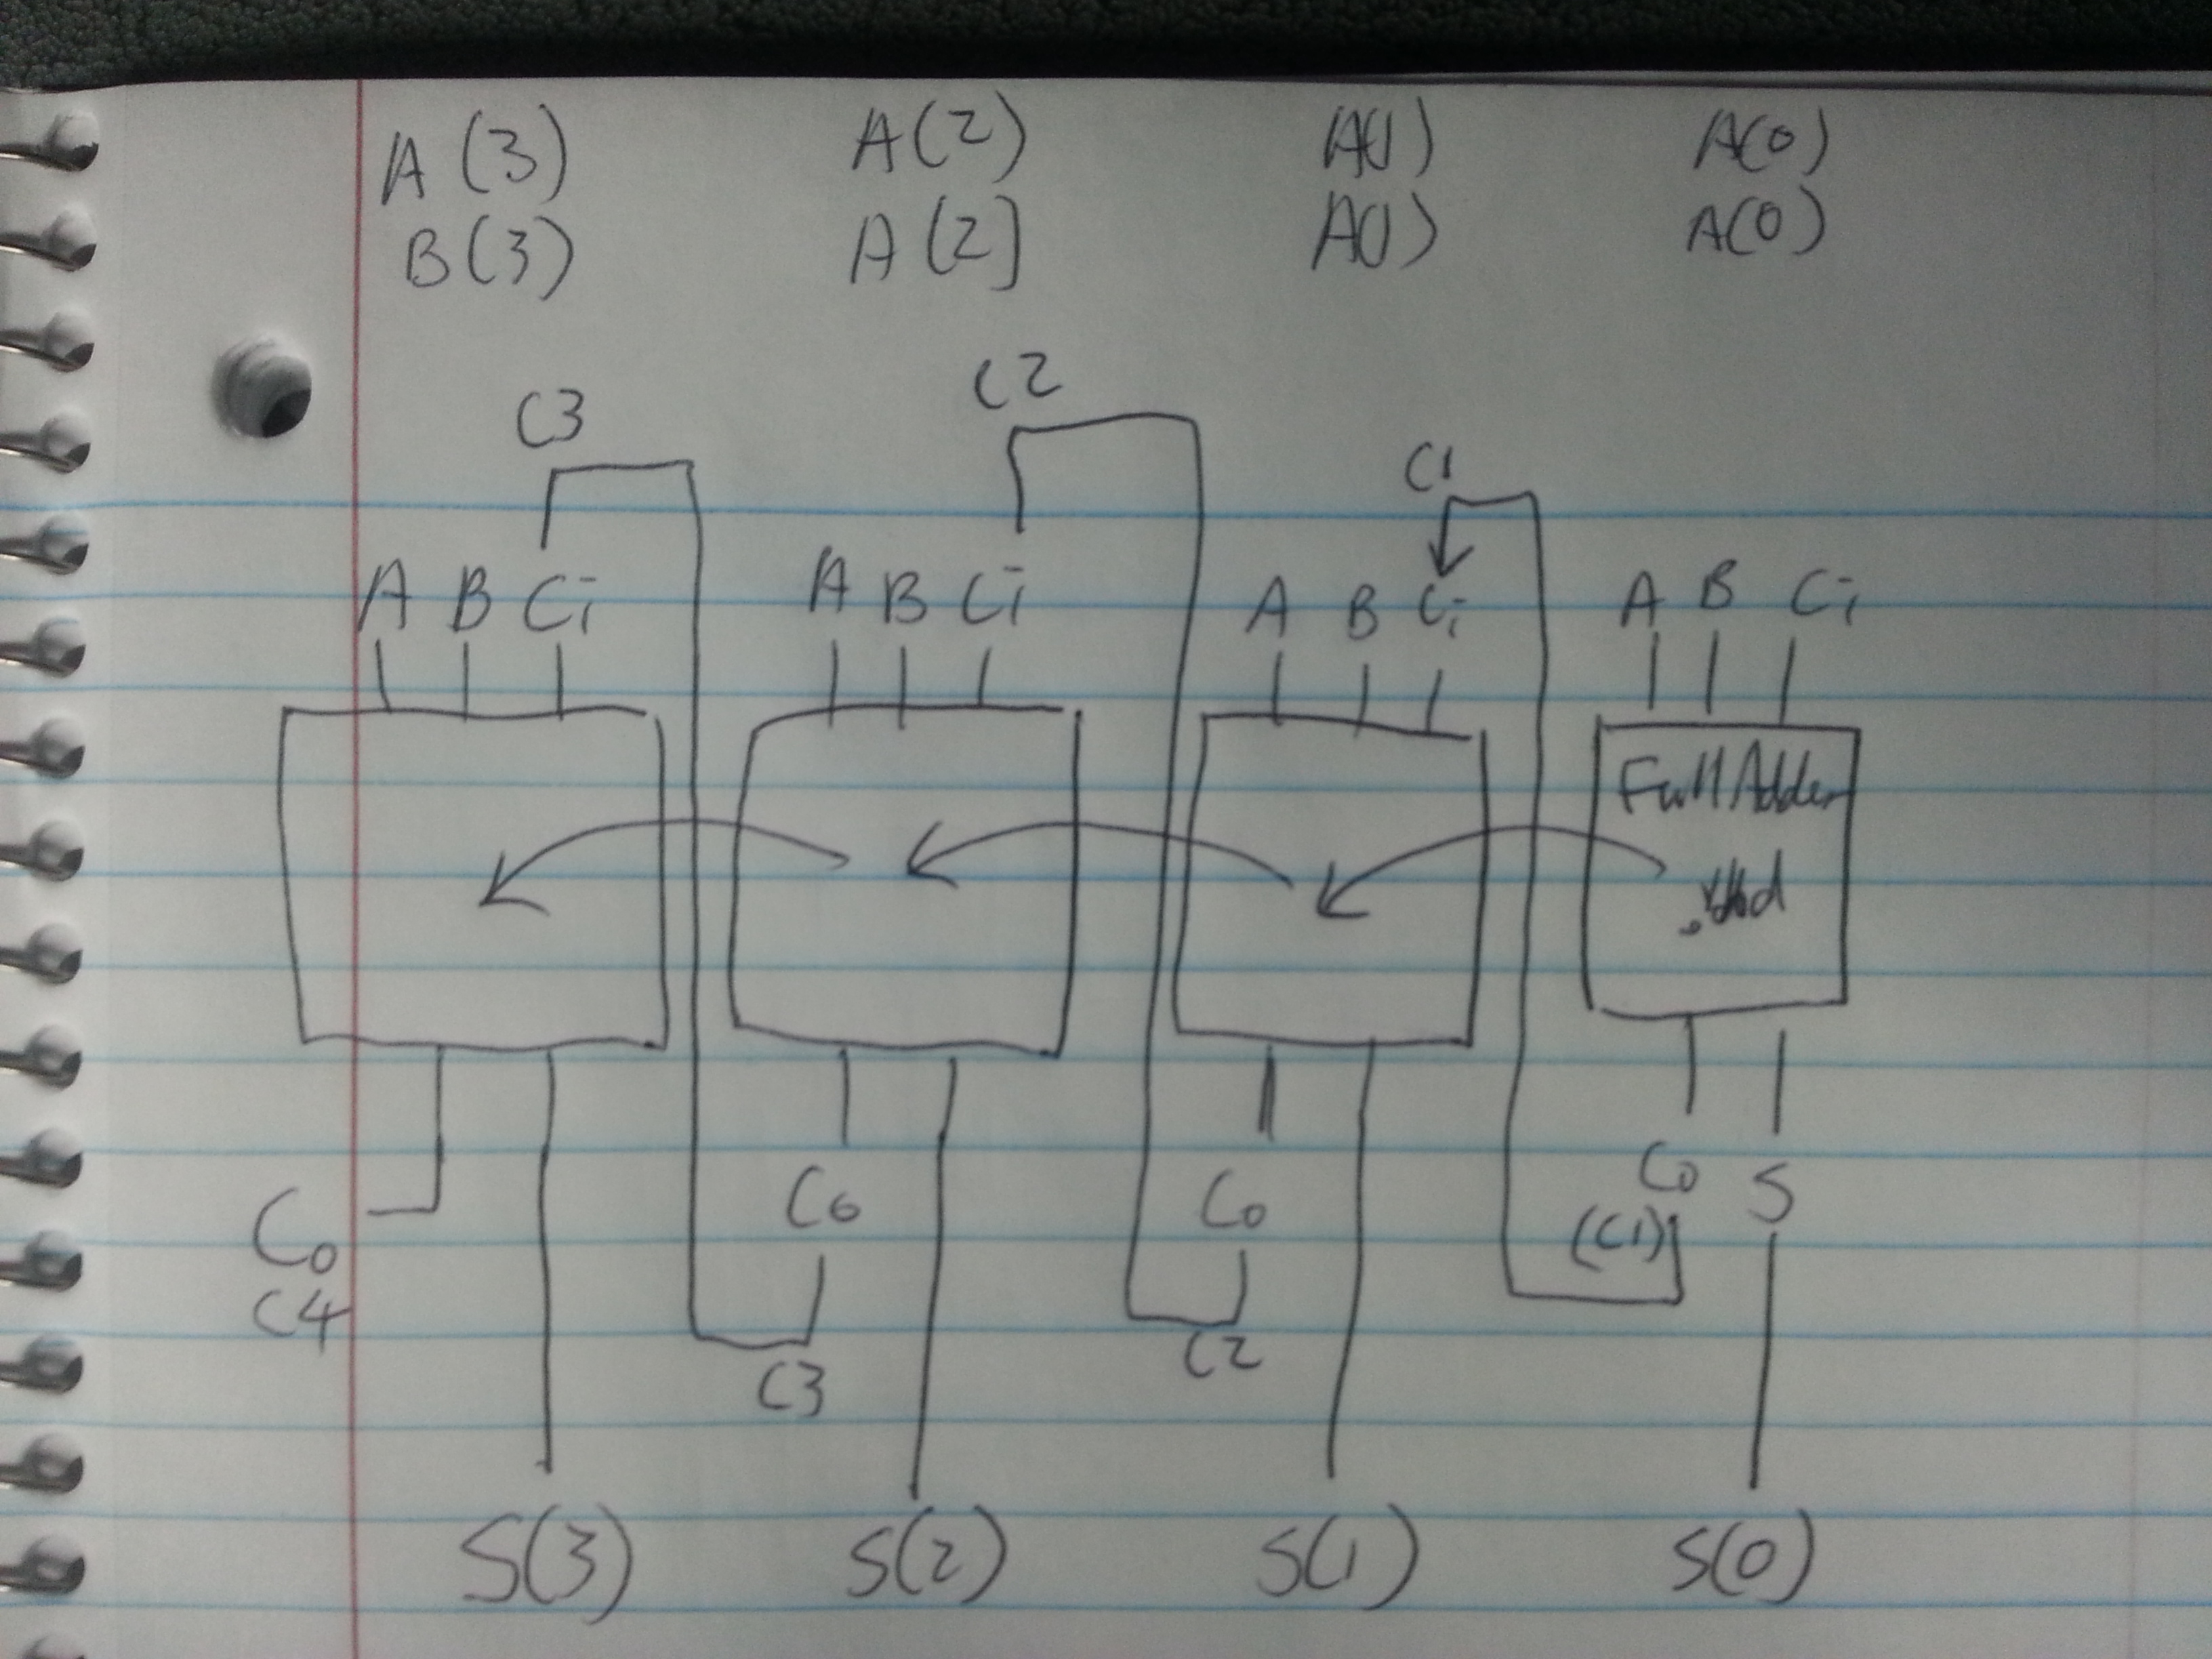 A(3) A(2) A(1) A(0)
B(3) A(2] A(1) A(0)
C3 C2 C1
A B Ci A B Ci A B Ci A B Ci
Full Adder
.vhd
Co Co Co Co S
C4 C3 C2 (C1)
S(3) S(2) S(1) S(0)